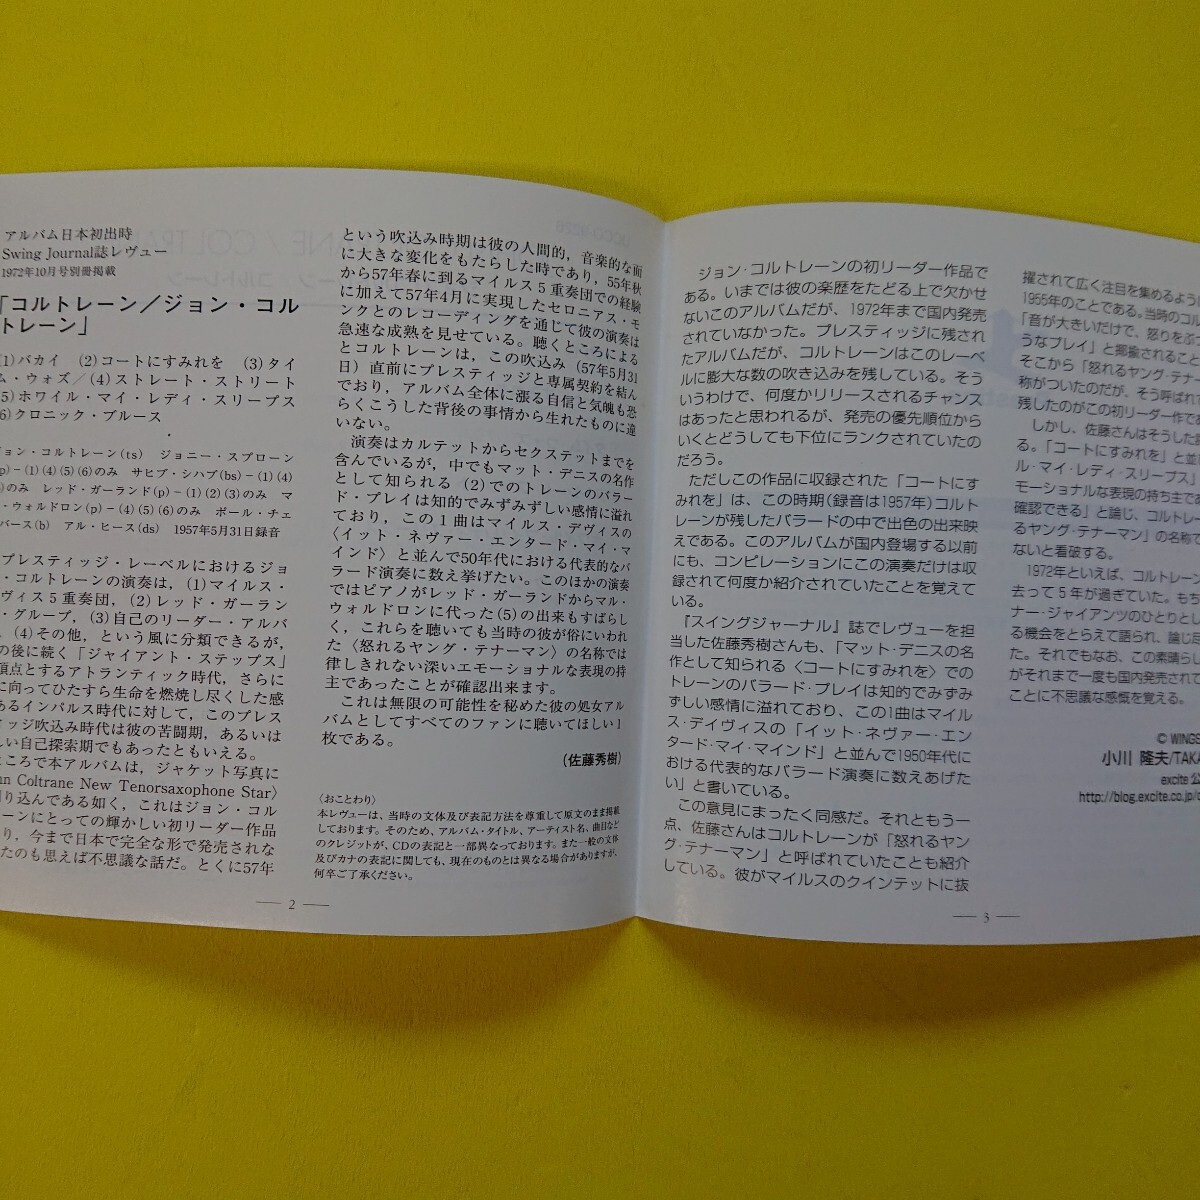 アルバム日本初出時
Swing Journal誌レヴュー
1972年10月号別冊掲載
「コルトレーン／ジョン・コル
トレーン」
(1)バカイ (2)コートにすみれを (3)タイ
ム・ウォズ／(4)ストレート・ストリート
(5)ホワイル・マイ・レディ・スリープス
(6)クロニック・ブルース
ョン・コルトレーン(ts) ジョニー・スプローン
p)－(1)(4)(5)(6)のみ サヒブ・シハブ(bs)－(1)(4)
のみ レッド・ガーランド(p)－(1)(2)(3)のみ マ
・ウォルドロン(p)－(4)(5)(6)のみ ポール・チェ
バース(b) アル・ヒース(ds) 1957年5月31日録音
プレスティッジ・レーベルにおけるジョ
・コルトレーンの演奏は，(1)マイルス・
ヴィス5重奏団，(2)レッド・ガーラン
・グループ，(3)自己のリーダー・アルバ
，(4)その他，という風に分類できるが，
の後に続く「ジャイアント・ステップス」
頂点とするアトランティック時代，さらに
に向ってひたすら生命を燃焼し尽くした感
あるインパルス時代に対して，このプレス
ィッジ吹込み時代は彼の苦闘期，あるいは
しい自己探索期でもあったともいえる。
ころで本アルバムは，ジャケット写真に
n Coltrane New Tenorsaxophone Star〉
刷り込んである如く，これはジョン・コル
ーンにとっての輝かしい初リーダー作品
り，今まで日本で完全な形で発売されな
たのも思えば不思議な話だ。とくに57年
という吹込み時期は彼の人間的，音楽的な面
に大きな変化をもたらした時であり，55年秋
から57年春に到るマイルス5重奏団での経験
に加えて57年4月に実現したセロニアス・モ
ンクとのレコーディングを通じて彼の演奏は
急速な成熟を見せている。聴くところによる
とコルトレーンは，この吹込み（57年5月31
日）直前にプレスティッジと専属契約を結ん
でおり，アルバム全体に漲る自信と気魄も恐
らくこうした背後の事情から生れたものに違
いない。
演奏はカルテットからセクステットまでを
含んでいるが，中でもマット・デニスの名作
として知られる (2)でのトレーンのバラー
ド・プレイは知的でみずみずしい感情に溢れ
ており，この1曲はマイルス・デヴィスの
〈イット・ネヴァー・エンタード・マイ・マ
インド〉と並んで50年代における代表的なバ
ラード演奏に数え挙げたい。このほかの演奏
ではピアノがレッド・ガーランドからマル・
ウォルドロンに代った(5)の出来もすばらし
く，これらを聴いても当時の彼が俗にいわれ
た〈怒れるヤング・テナーマン〉の名称では
律しきれない深いエモーショナルな表現の持
主であったことが確認出来ます。
これは無限の可能性を秘めた彼の処女アル
バムとしてすべてのファンに聴いてほしい1
枚である。
（佐藤秀樹）
〈おことわり〉
本レヴューは、当時の文体及び表記方法を尊重して原文のまま掲載
しております。そのため、アルバム・タイトル、アーティスト名、曲目など
のクレジットが、CDの表記と一部異なっております。また一般の文体
及びカナの表記に関しても、現在のものとは異なる場合がありますが、
何卒ご了承ください。
— 2 —
ジョン・コルトレーンの初リーダー作品で
ある。いまでは彼の楽歴をたどる上で欠かせ
ないこのアルバムだが、1972年まで国内発売
されていなかった。プレスティッジに残され
たアルバムだが、コルトレーンはこのレーベ
ルに膨大な数の吹き込みを残している。そう
いうわけで、何度かリリースされるチャンス
はあったと思われるが、発売の優先順位から
いくとどうしても下位にランクされていたの
だろう。
ただしこの作品に収録された「コートにす
みれを」は、この時期（録音は1957年）コルト
レーンが残したバラードの中で出色の出来映
えである。このアルバムが国内登場する以前
にも、コンピレーションにこの演奏だけは収
録されて何度か紹介されていたことを覚えて
いる。
『スイングジャーナル』誌でレヴューを担
当した佐藤秀樹さんも、「マット・デニスの名
作として知られる〈コートにすみれを〉での
トレーンのバラード・プレイは知的でみずみ
ずしい感情に溢れており、この1曲はマイル
ス・デイヴィスの「イット・ネヴァー・エン
タード・マイ・マインド」と並んで1950年代に
おける代表的なバラード演奏に数えあげた
い」と書いている。
この意見にまったく同感だ。それともう一
点、佐藤さんはコルトレーンが「怒れるヤン
グ・テナーマン」と呼ばれていたことも紹介
している。彼がマイルスのクインテットに抜
— 3 —
擢されて広く注目を集めるよう
1955年のことである。当時のコル
「音が大きいだけで、怒りをぶつ
うなプレイ」と揶揄されること
そこから「怒れるヤング・テナー
称がついたのだが、そう呼ばれて
残したのがこの初リーダー作であ
しかし、佐藤さんはそうした
る。「コートにすみれを」と並
ル・マイ・レディ・スリープス」
モーショナルな表現の持ち主であ
確認できる」と論じ、コルトレー
るヤング・テナーマン」の名称で
ないと看破する。
1972年といえば、コルトレーン
去って5年が過ぎていた。もち
ナー・ジャイアンツのひとりとし
る機会をとらえて語られ、論じ
た。それでもなお、この素晴らし
がそれまで一度も国内発売されて
ことに不思議な感慨を覚える。
© WINGS
小川 隆夫/TAKA
excite 公
http://blog.excite.co.jp/